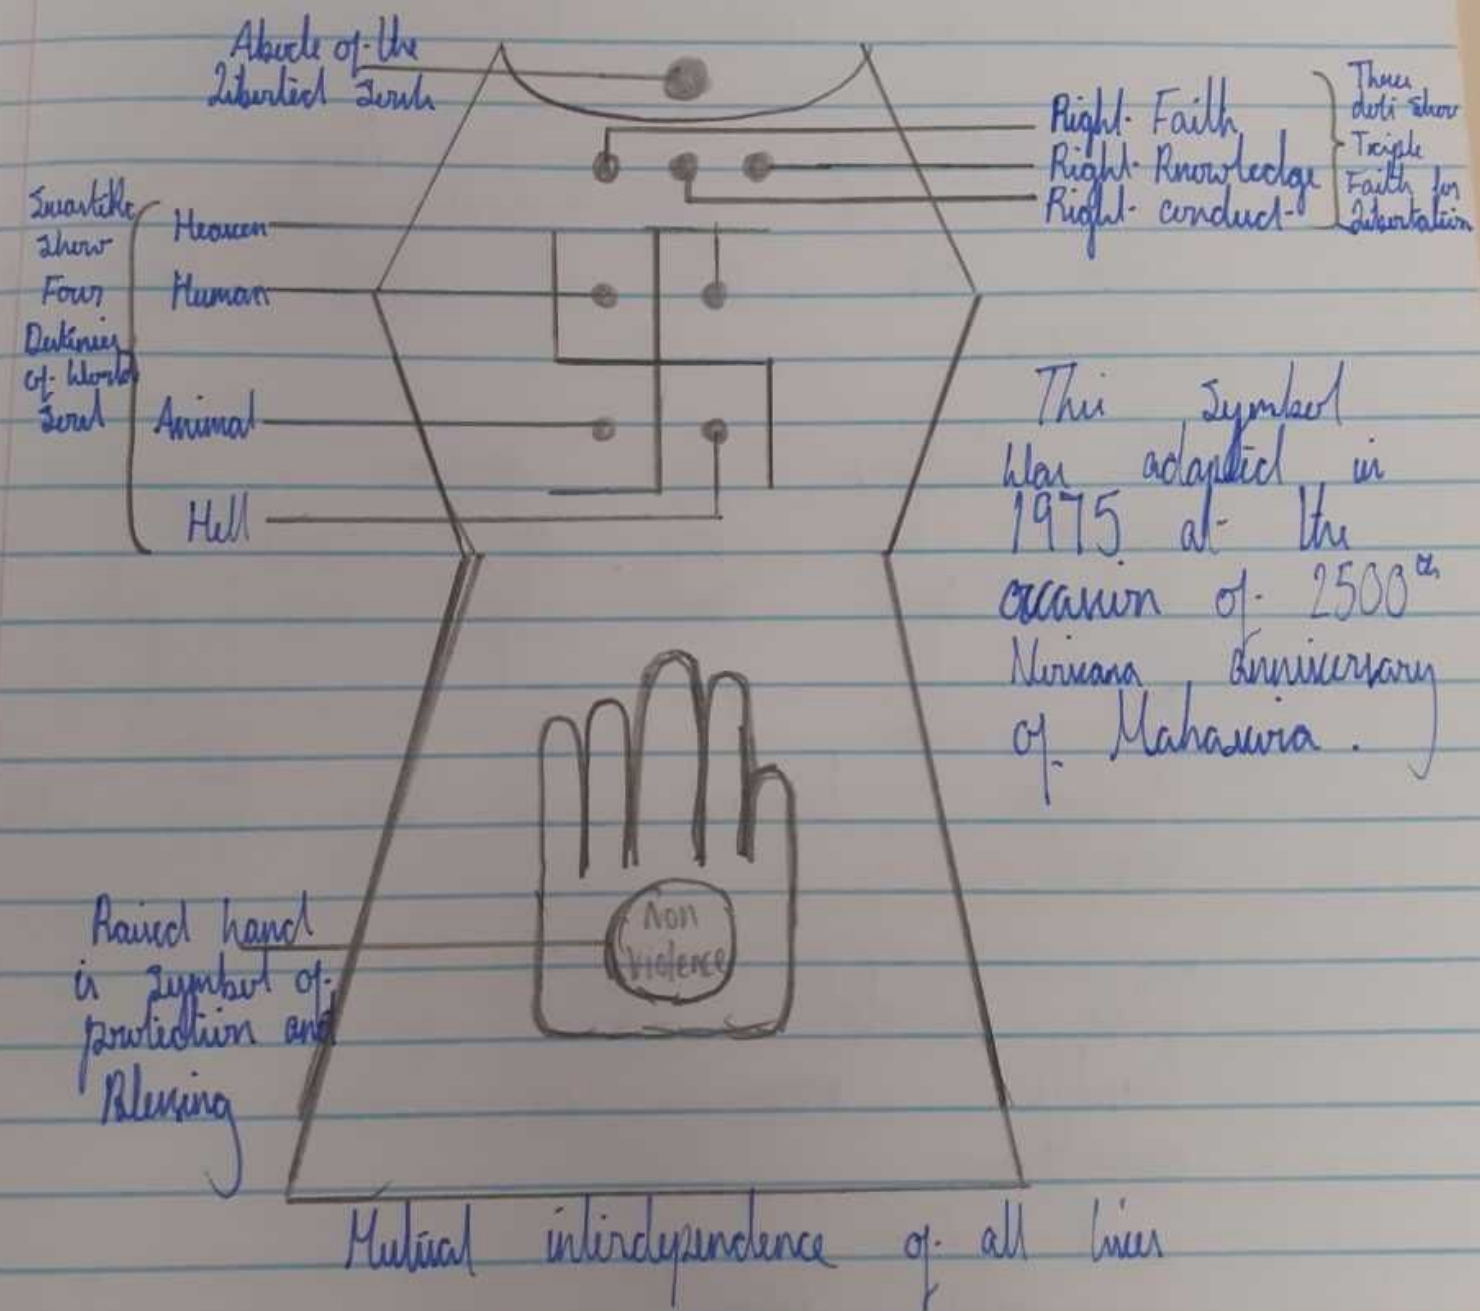 Abode of the
Liberted Souls
Right Faith
Right Knowledge
Right conduct
Three
dots show
Triple
Faith for
Libertation
Swastika
show
Four
Destinies
of World
Soul
Heaven
Human
Animal
Hell
This Symbol
was adapted in
1975 at the
occasion of 2500th
Nirvana Anniversary
of Mahavira.
Non
Violence
Raised hand
is symbol of
protection and
Blessing
Mutual interdependence of all lives